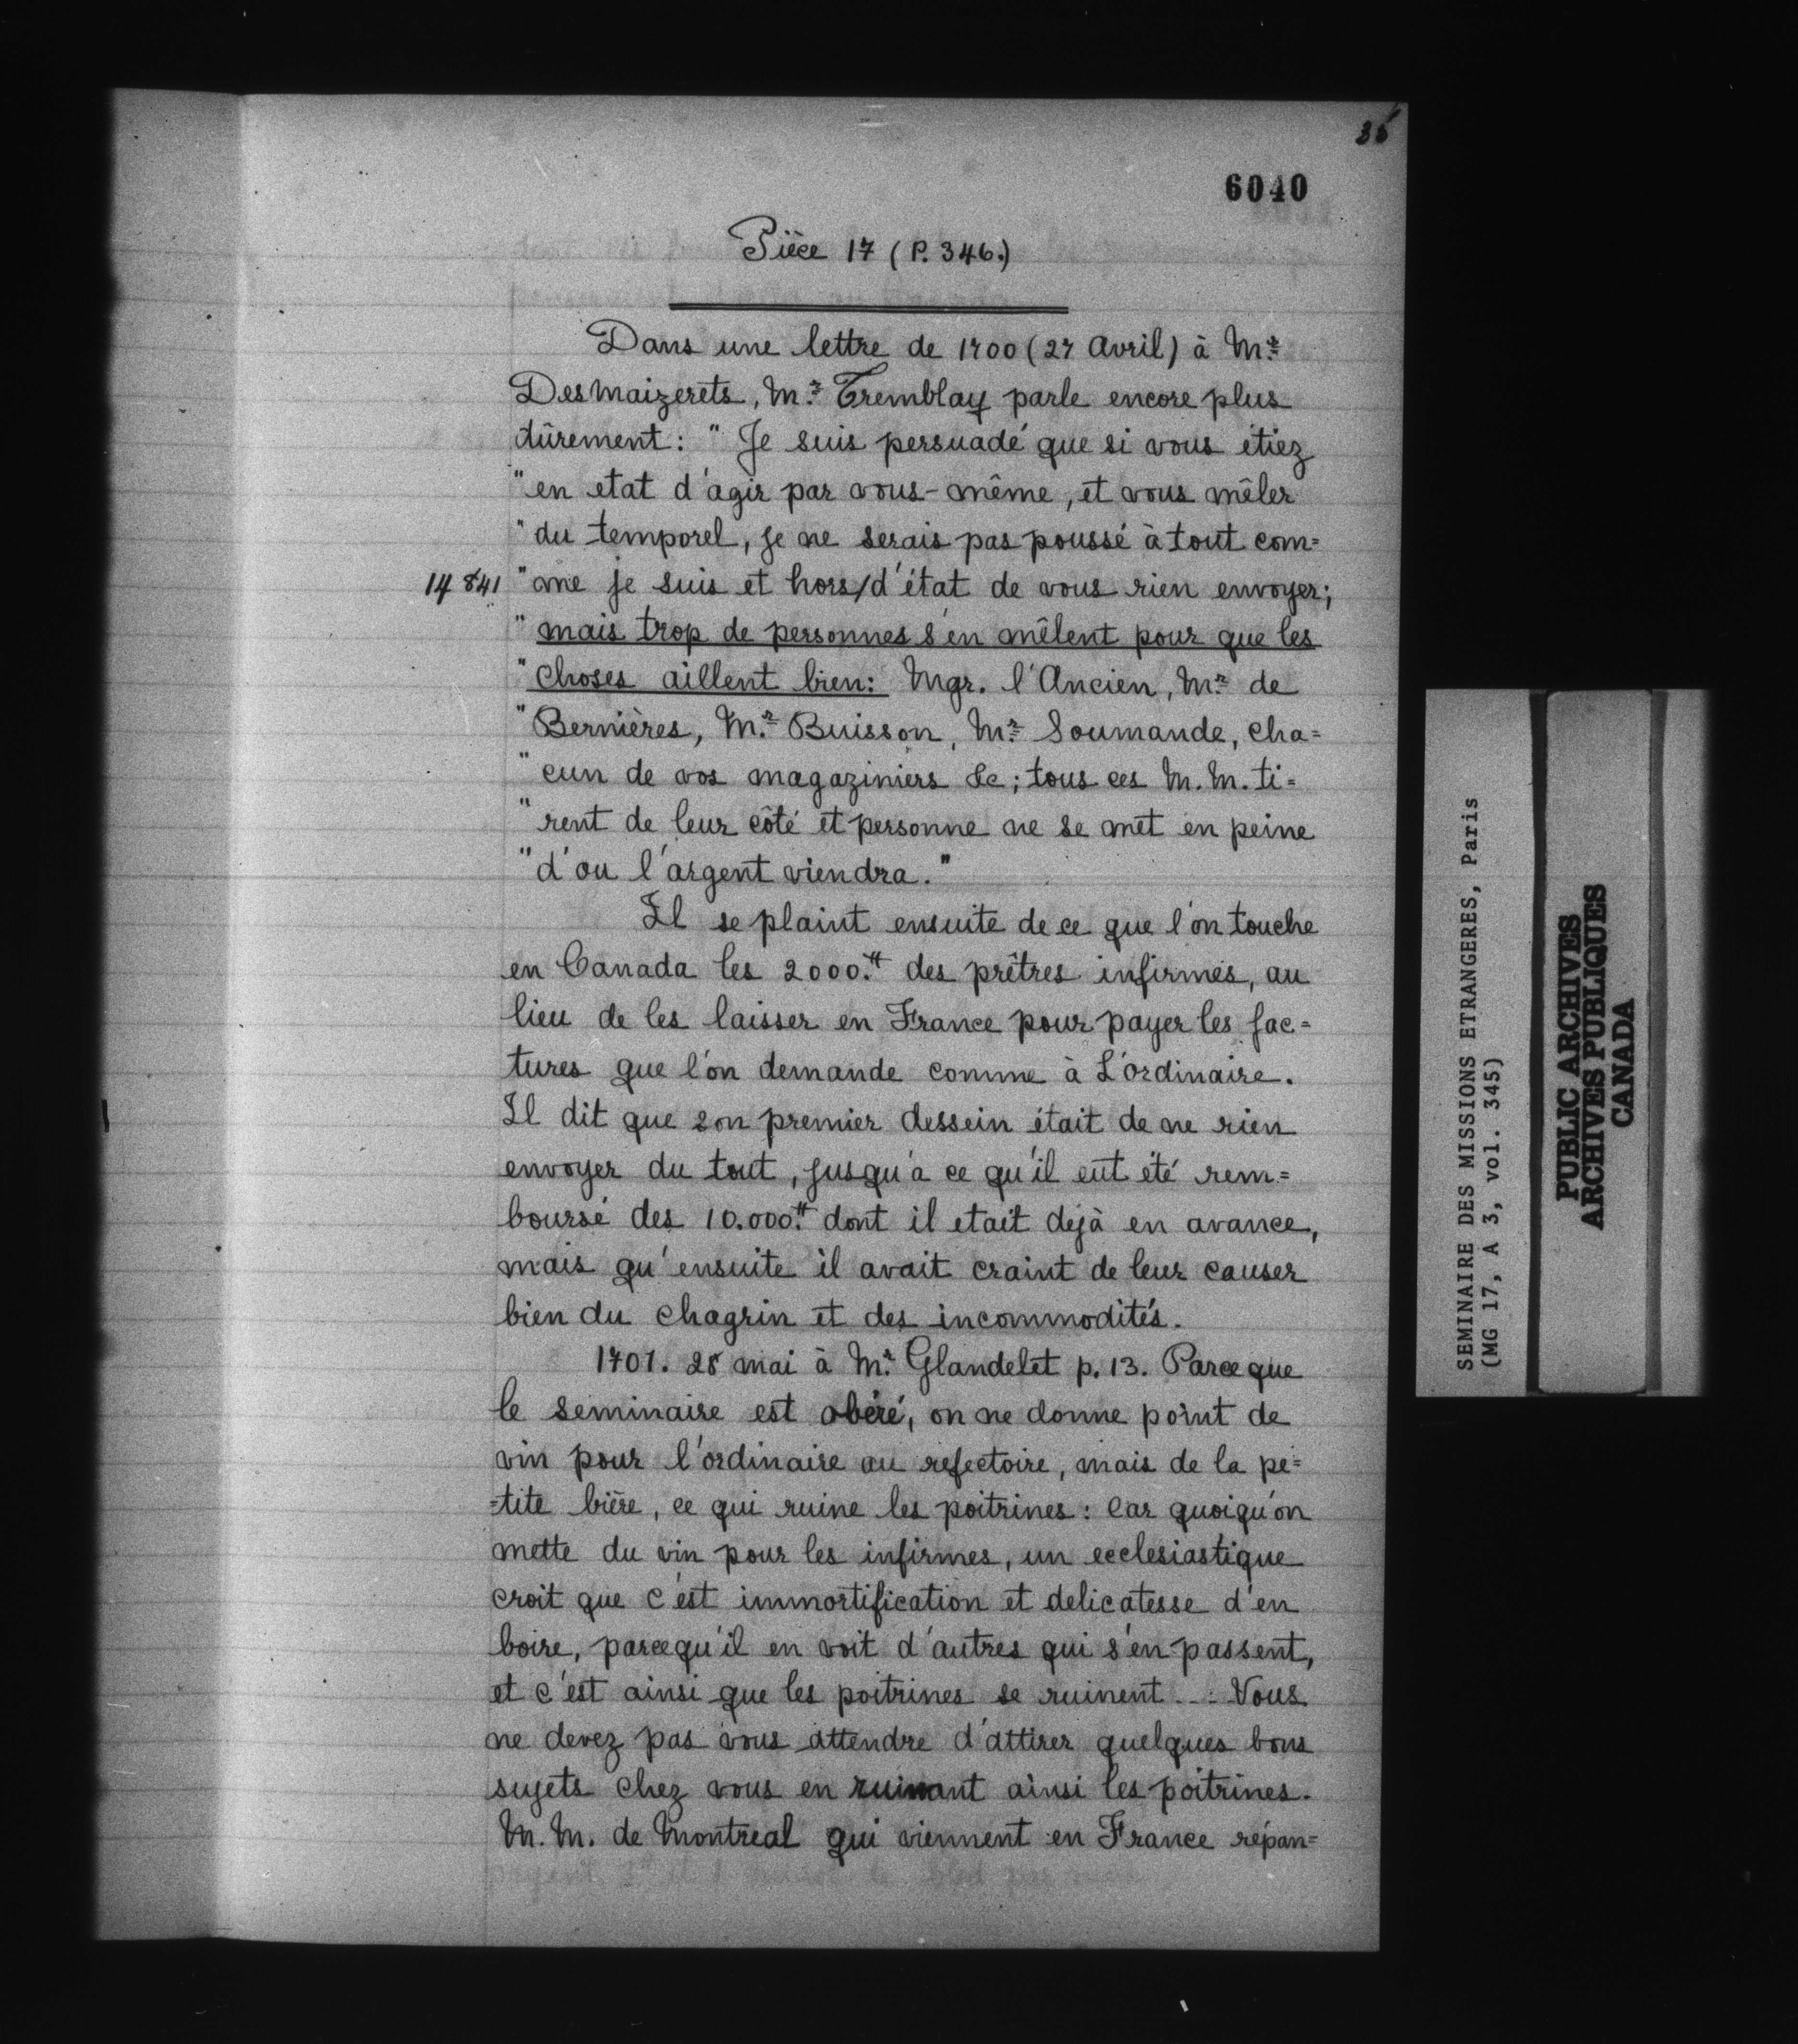 35
6040
Pièce 17 (P. 346.)
Dans une lettre de 1700 (27 Avril) à Mr.
DesMaizerets, Mr. Tremblay parle encore plus
dûrement: " Je suis persuadé que si vous étiez
" en etat d'agir par vous-même, et vous mêler
" du temporel, je ne serais pas poussé à tout com=
14 841 " me je suis et hors/d'état de vous rien envoyer;
" mais trop de personnes s'en mêlent pour que les
" choses aillent bien: Mgr. l'Ancien, Mr. de
" Bernières, Mr. Buisson, Mr. Soumande, cha=
" cun de vos magaziniers &c; tous ces M. M. ti=
" rent de leur côté et personne ne se met en peine
" d'ou l'argent viendra."
Il se plaint ensuite de ce que l'on touche
en Canada les 2000.tt des prêtres infirmes, au
lieu de les laisser en France pour payer les fac=
tures que l'on demande comme à L'ordinaire.
Il dit que son premier dessein était de ne rien
envoyer du tout, jusqu'à ce qu'il eut été rem=
boursé des 10.000.tt dont il etait dejà en avance,
mais qu'ensuite il avait craint de leur causer
bien du chagrin et des incommodités.
1701. 28 mai à Mr. Glandelet p. 13. Parce que
le seminaire est obéré, on ne donne point de
vin pour l'ordinaire au refectoire, mais de la pe=
=tite bière, ce qui ruine les poitrines: Car quoiqu'on
mette du vin pour les infirmes, un ecclesiastique
croit que c'est immortification et delicatesse d'en
boire, parcequ'il en voit d'autres qui s'en passent,
et c'est ainsi que les poitrines se ruinent ... Vous
ne devez pas vous attendre d'attirer quelques bons
sujets chez vous en ruinant ainsi les poitrines.
M. M. de Montreal qui viennent en France répan=
SEMINAIRE DES MISSIONS ETRANGERES, Paris
(MG 17, A 3, vol. 345)
PUBLIC ARCHIVES
ARCHIVES PUBLIQUES
CANADA